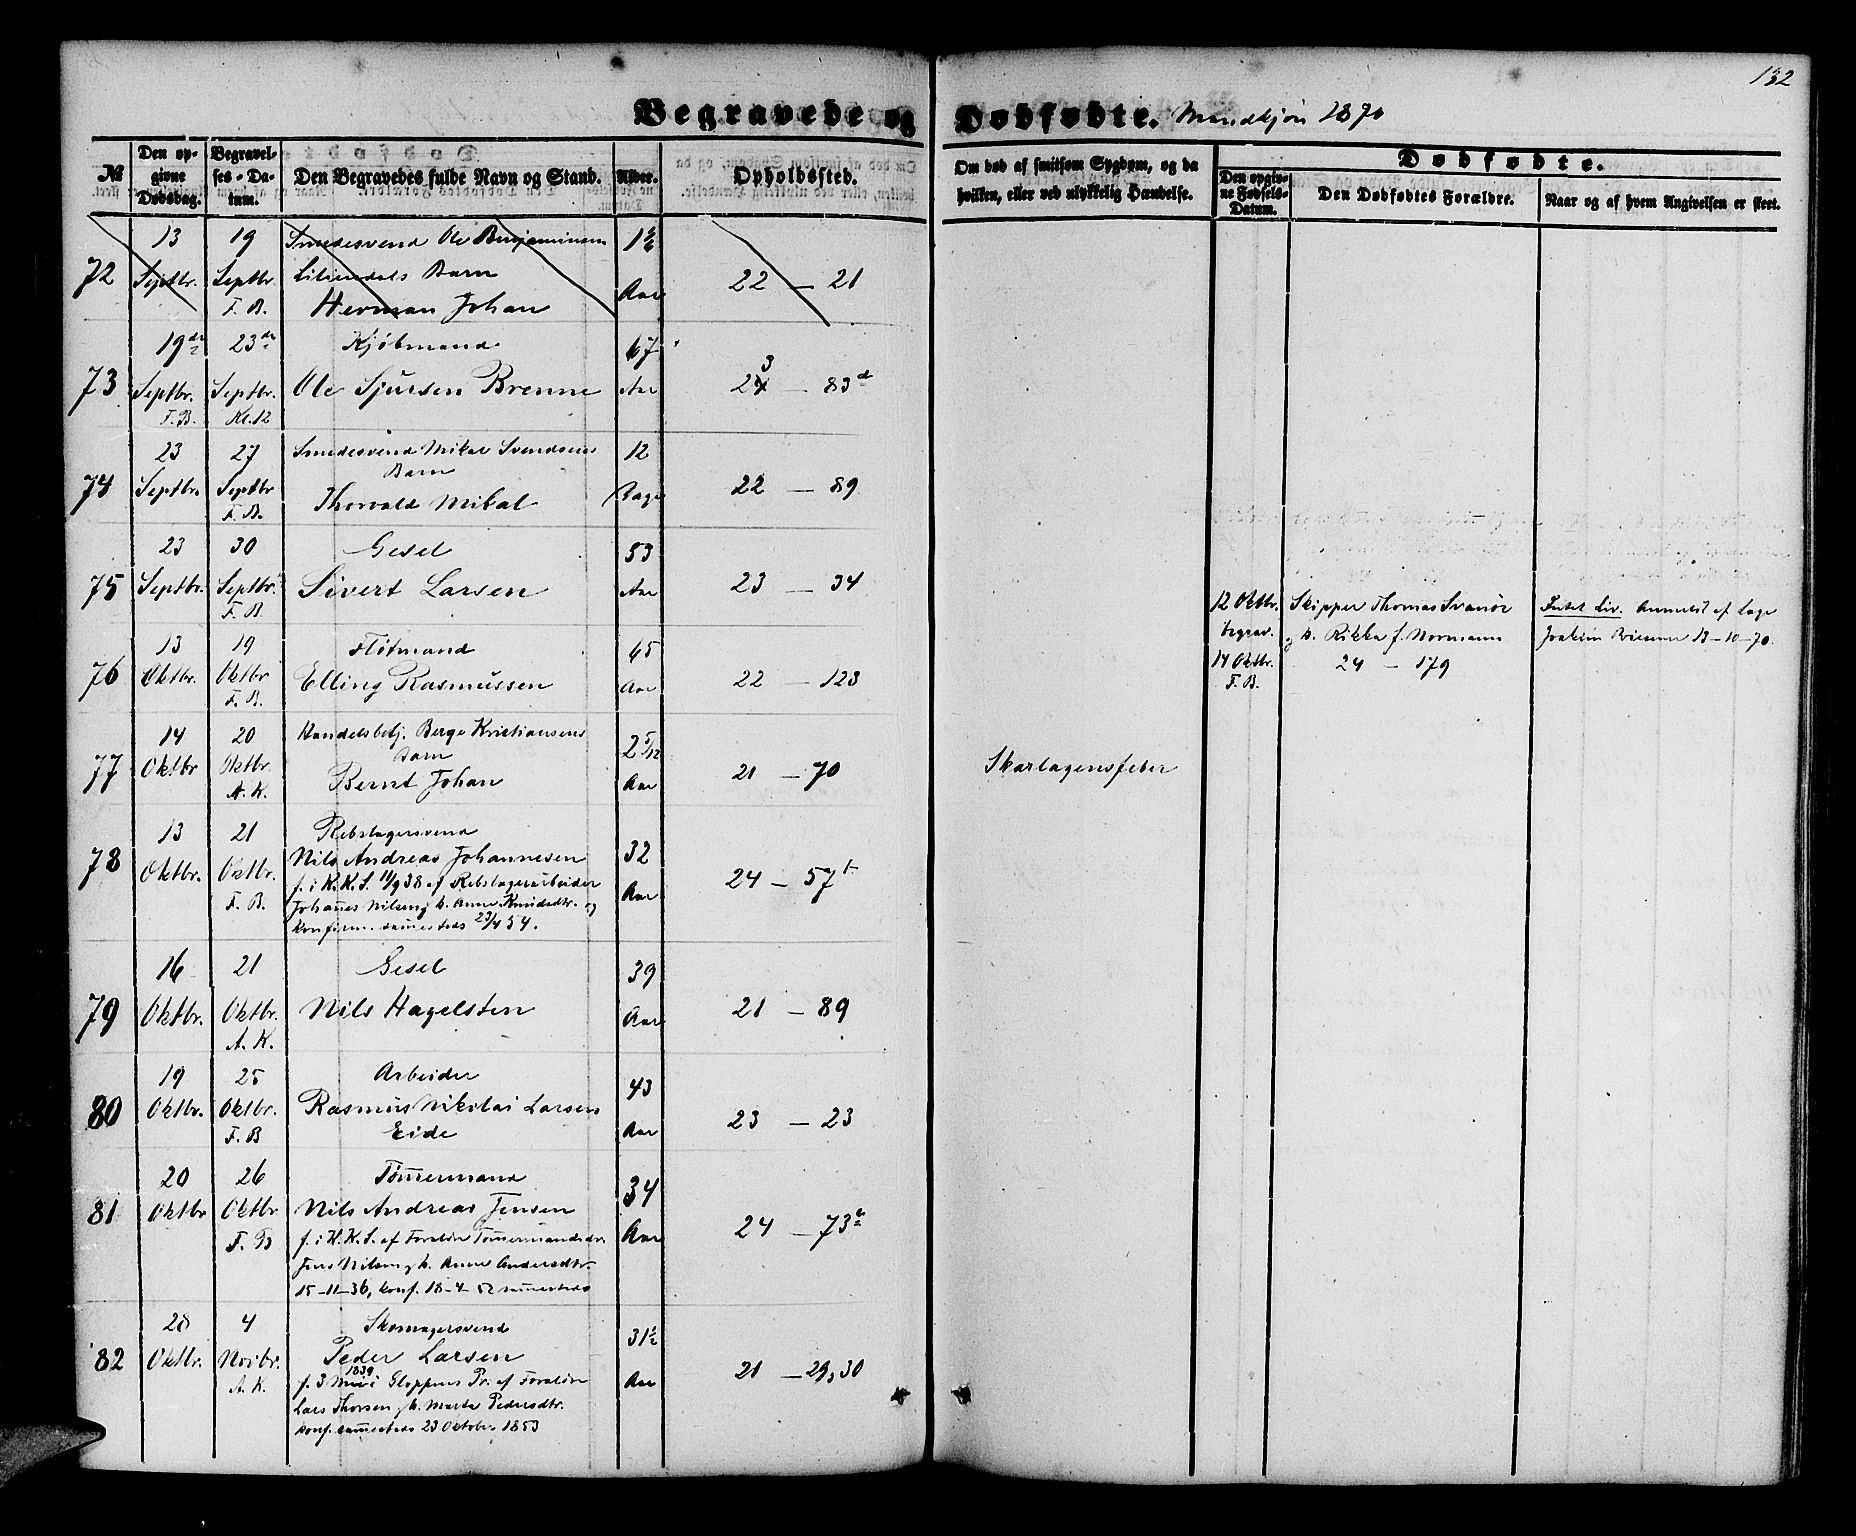 132
Begravede og Dødfødte. Mandkjøn 1870
№
Den opgivne Dødsdag.
Begravelses-Datum.
Den Begravedes fulde Navn og Stand.
Alder.
Opholdssted.
Om død af smitsom Sygdom, og da hvilken, eller ved ulykkelig Hændelse.
Dødfødte.
Den opgivne Fødsels-Datum.
Den Dødfødtes Forældre.
Naar og af hvem Angivelsen er skeet.
72 13 Septbr. 19 Septbr. F. B. Smedesvend Ole Benjaminsen
Barn
Herman Johan Aar 22 — 21
73 19de Septbr. F. B. 23de Septbr. Kl. 12 Kjøbmand
Ole Sjursen Brenne 67 Aar 23 — 83d
74 23 Septbr. 27 Septbr F. B. Smedesvend Mikal Svendsens
Barn
Thorvald Mikal 12 Dage 22 — 89
75 23 Septbr. 30 Septbr. F. B. Gesel
Sivert Larsen 53 Aar 23 — 34
12 Oktbr. begrav. 14 Oktbr. F. B.
Skipper Thomas Svanøe
og h. Rikka f. Normann
24 — 179
Intet Liv. Anmeldt af Læge
Joakim 13-10-70.
76 13 Oktbr. 19 Oktbr F. B. Fløtmand
Elling Rasmussen 65 Aar 22 — 123
77 14 Oktbr 20 Oktbr. A. K. Handelsbetj. Berge Kristiansens
Barn
Bernt Johan 2 5/12 Aar 21 — 70 Skarlagensfeber
78 13 Oktbr. 21 Oktbr. F. B. Rebslagersvend
Nils Andreas Johannesen
f. i K. K. S. 11/9 38 af Rebslagerarbeider
Johanes Nilsen og h. Anne Knudsdtr. og
konfirm. sammesteds 23/4 54. 32 Aar 24 — 57b
79 16 Oktbr. 21 Oktbr. A. K. Gesel
Nils Hagelsten 39 Aar 21 — 89
80 19 Oktbr. 25 Oktbr. F. B Arbeider
Rasmus Nikolai Larsen
Eide 43 Aar 23 — 23
81 20 Oktbr 26 Oktbr F. B Tømmermand
Nils Andreas Jensen
f. i K. K. S. af Foreldre Tømmermandsdr.
Jens Nilsen og h. Anne Andersdtr.
15-11-36, konf. 18-4-52 sammesteds 34 Aar 24 — 73b
82 28 Oktbr. 4 Novbr. A. K. Skomagersvend
Peder Larsen
f. 3 Mai 1839 i Gloppens Pr. af Foreldre
Lars Thorsen og h. Marta Pedersdtr.
konf. sammesteds 23 Oktober 1853 31 1/2 Aar 21 — 29, 30